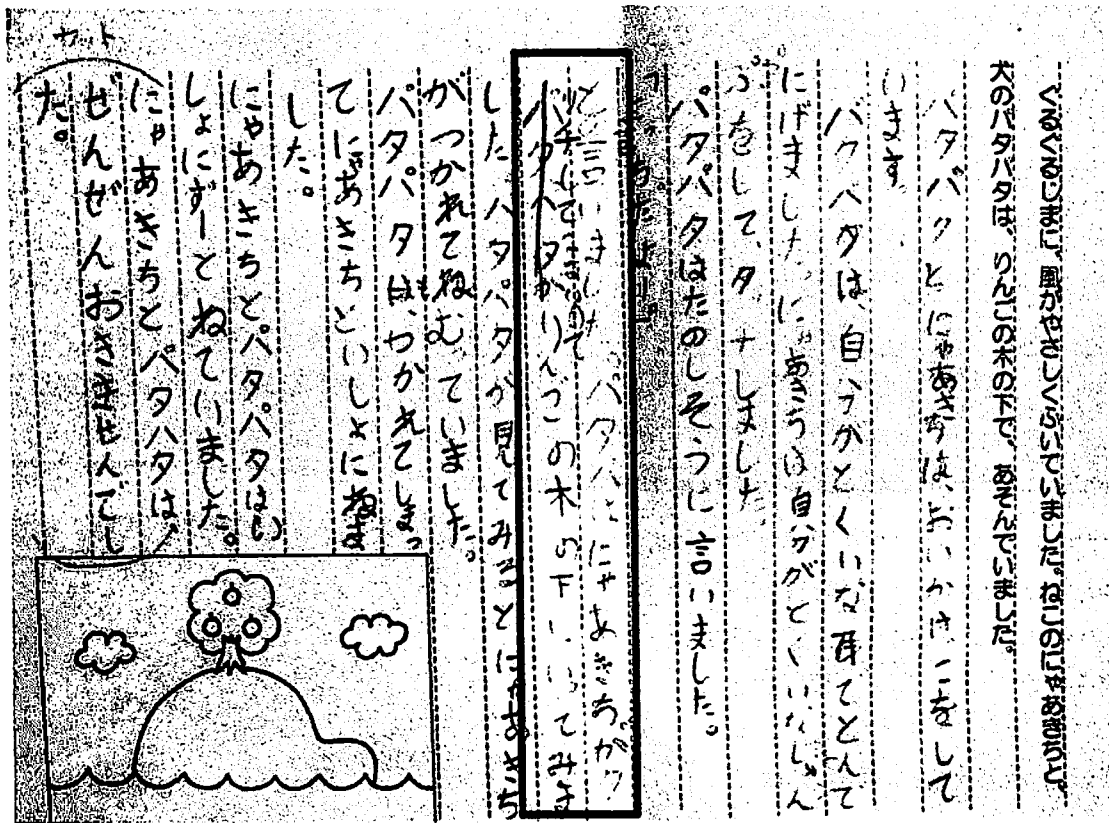 くるくるじまに、風がやさしくふいていました。ねこのにゃあきちと、
犬のパタパタは、りんごの木の下で、あそんでいました。
パタパタとにゃあきちは、おいかけっこをして
います。
パタパタは、自分がとくいな耳でとんで
にげました。にゃあきちは自分がとくいなジャン
プをして、タッチしました。
パタパタはたのしそうに言いました。
と言いました
パタパタがりんごの木の下にいってみま
した。パタパタが見てみるとにゃあきち
がつかれてねむっていました。
パタパタも、つかれてしまっ
てにゃあきちといっしょにねま
した。
にゃあきちとパタパタはいっ
しょにずーとねていました。
にゃあきちとパタパタは、
ぜんぜんおきませんでし
た。
カット